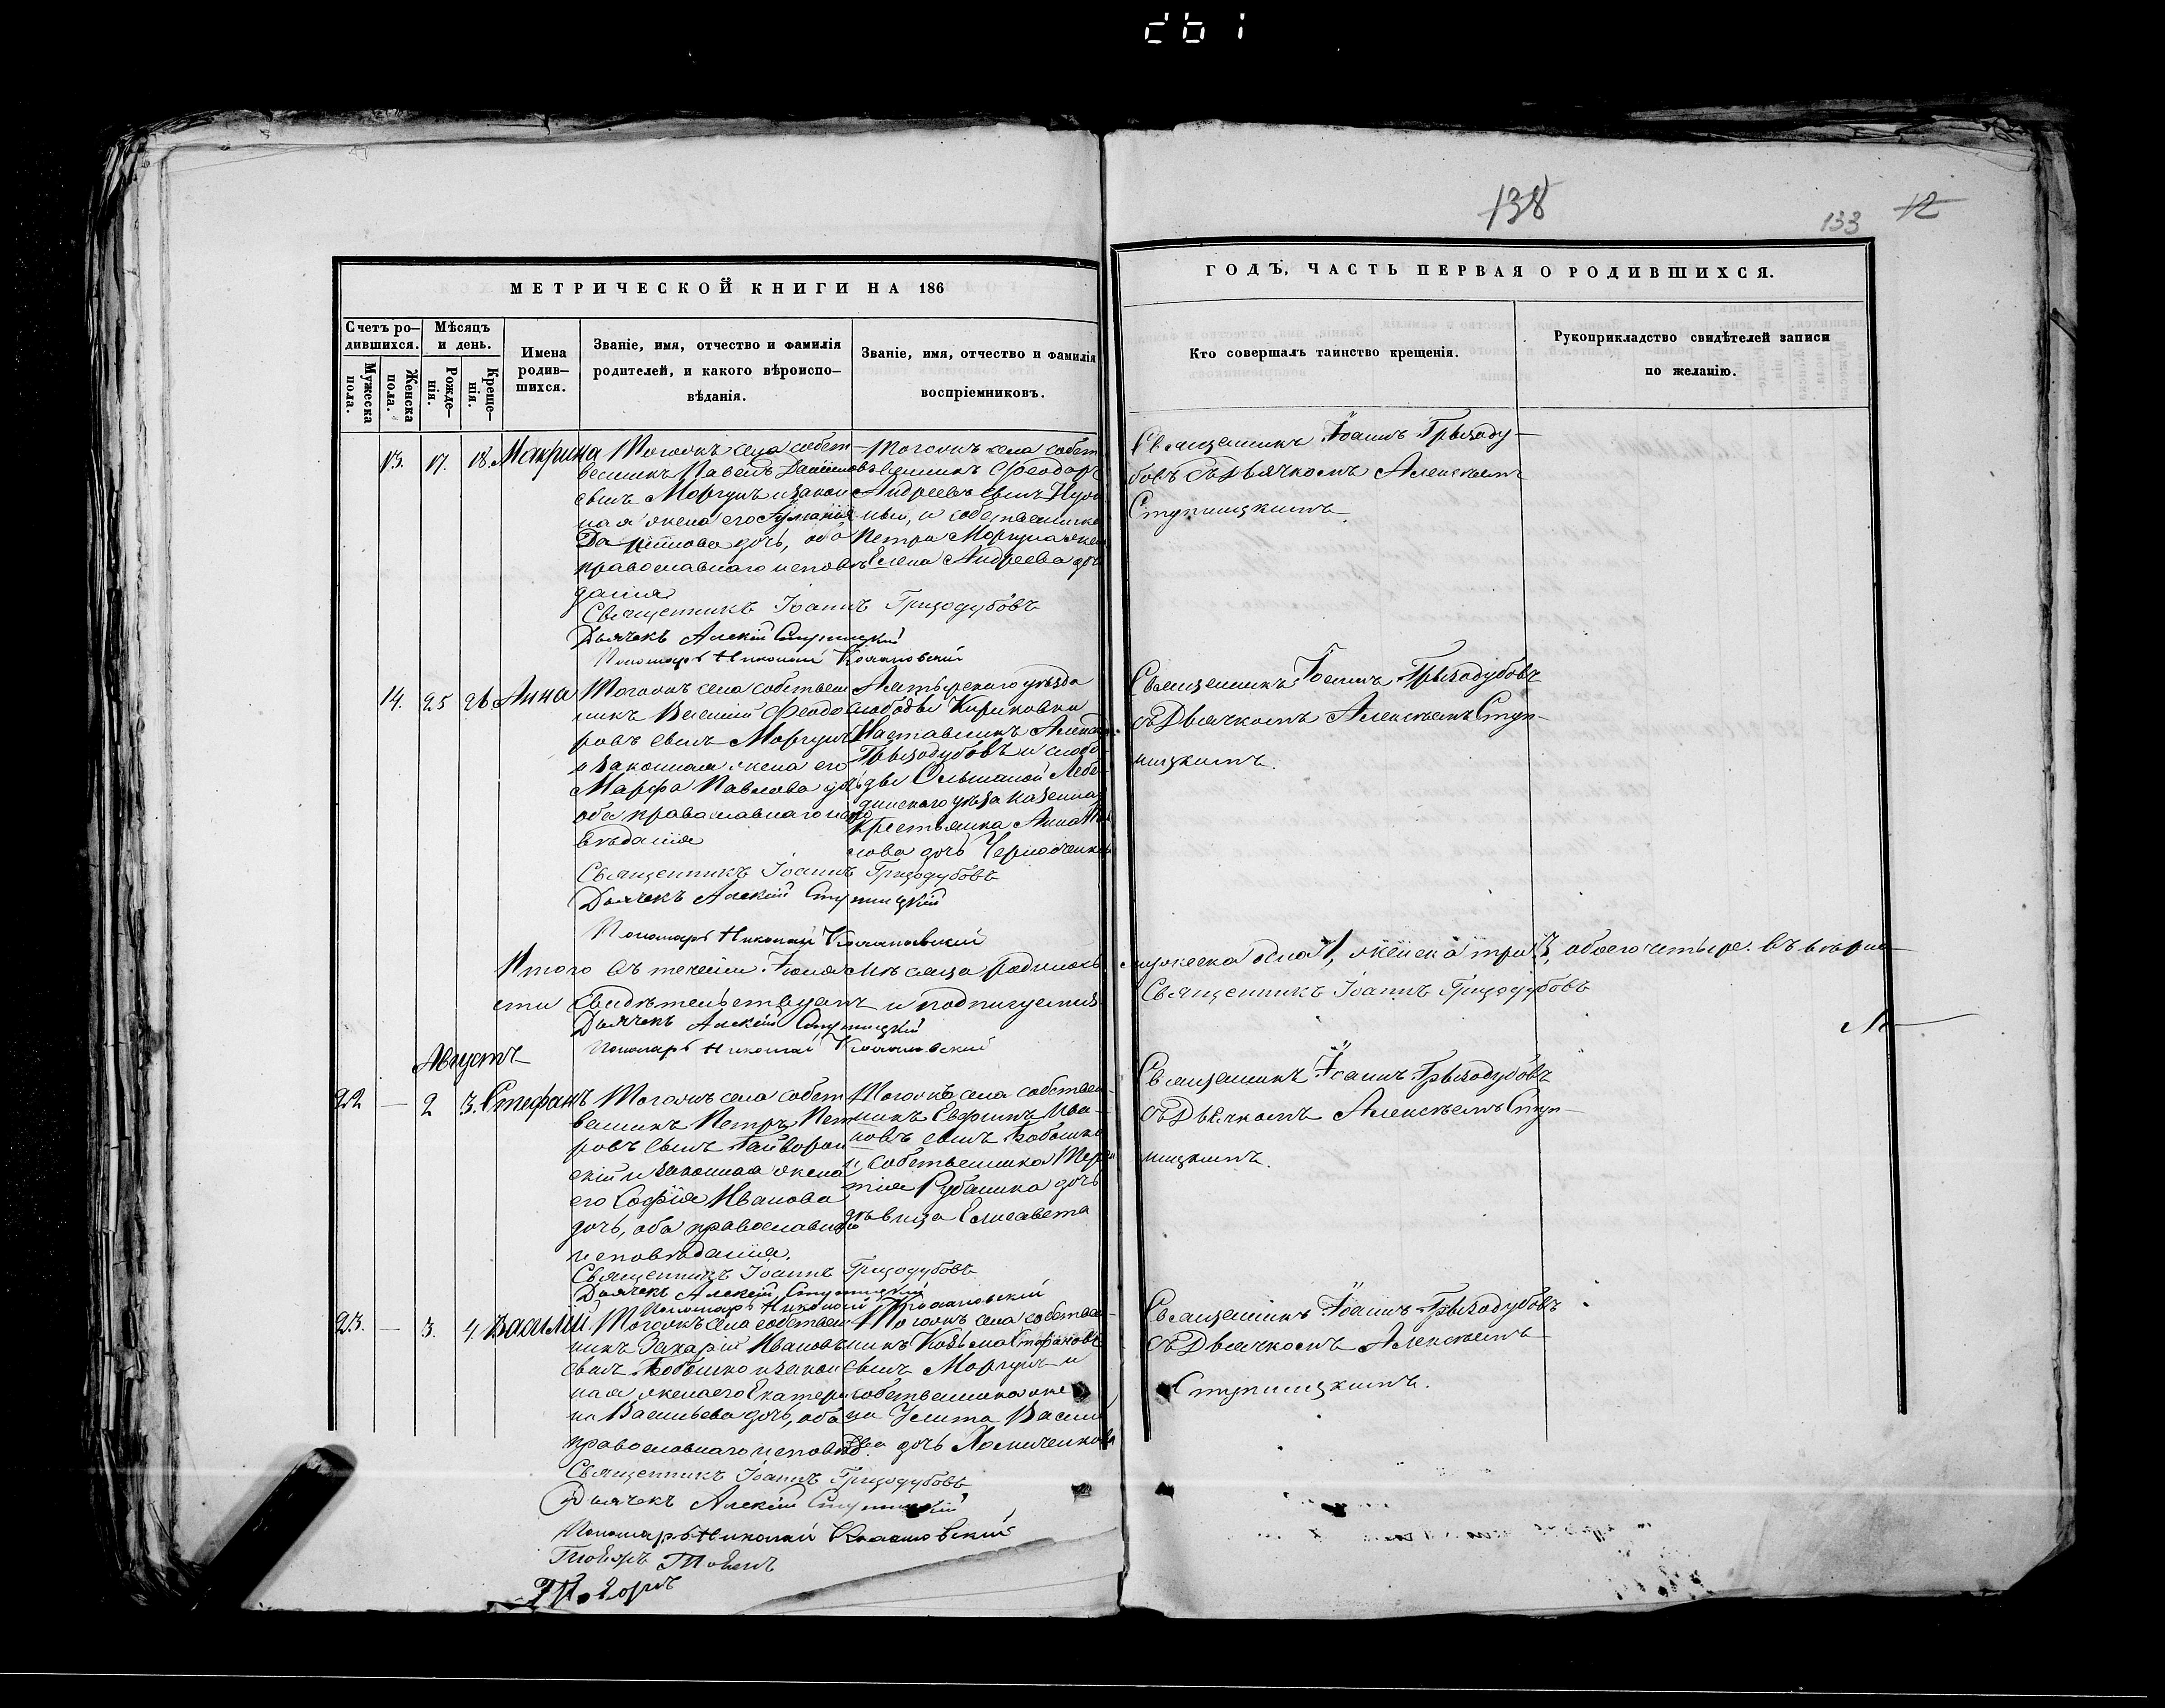 138
133 12
МЕТРИЧЕСКОЙ КНИГИ НА 186
ГОДЪ, ЧАСТЬ ПЕРВАЯ О РОДИВШИХСЯ.
Счетъ ро-
дившихся.
Мужеска пола.
Женска пола.
Мѣсяцъ
и день.
Рожде-
нія.
Креще-
нія.
Имена
родив-
шихся.
Званіе, имя, отчество и фамилія
родителей, и какого вѣроиспо-
вѣданія.
Званіе, имя, отчество и фамилія
воспріемниковъ.
Кто совершалъ таинство крещенія.
Рукоприкладство свидѣтелей записи
по желанію.
13. 17. 18. Макрина
села собст-
венникъ Павелъ
сынъ Моргунъ и закон
ная жена его
дочь, оба
православнаго исповѣ
данія
села собст
венникъ Феодоръ
Андреевъ сынъ
ный, и собственника
Петра Моргуна жена
Елена Андреева дочь
Священникъ Іоаннъ Грызоду-
бовъ съ Дьячкомъ Алексѣемъ
Ступницкимъ
Священникъ Іоаннъ Гризодубовъ
Дьячекъ Алексій Ступницкій
Пономарь Николай
14. 25 26 Анна
села собствен
никъ Василій Феодо
ровъ сынъ Моргунъ
и законная жена его
Марфа Павлова дочь
оба православнаго испо
вѣданія
Ахтырскаго уѣзда
слободы Кириковки
Наставникъ
Грызодубовъ и слобо
ды Ольшаной Лебе-
динскаго уѣзда казенная
крестьянка Анна
лова дочь
Священникъ Іоаннъ Грызодубовъ
съ Дьячкомъ Алексѣемъ Ступ-
ницкимъ.
Священникъ Іоаннъ Гризодубовъ
Дьячекъ Алексій Ступницкій
Пономарь Николай
Итого въ теченіи Іюля мѣсяца родилось мужеска одна 1, женска три 3, обоего четыре. Въ вѣрно-
сти свидѣтельствуемъ и подписуемся
Священникъ Іоаннъ Гризодубовъ
Дьячекъ Алексій Ступницкій
Пономарь Николай
Августъ
22 — 2 3. Стефанъ
села собст
венникъ Петръ Пет
ровъ сынъ Гайворон
скій и законная жена
его Софія Иванова
дочь, оба православнаго
исповѣданія.
села собствен-
никъ Ефимъ Ива-
новъ сынъ Бабешко
и собственника Терен
тія Рубаника дочь
дѣвица Елисавета
Священникъ Іоаннъ Грызодубовъ
съ Дьячкомъ Алексѣемъ Ступ-
ницкимъ.
Священникъ Іоаннъ Гризодубовъ
Дьячекъ Алексій Ступницкій
Пономарь Николай
23. — 3. 4. Василій
села собствен
никъ Захарій Ивановъ
сынъ Бабешко и закон
ная жена его Екатери
на Васильева дочь, оба
православнаго исповѣд.
села собствен-
никъ Козьма Стефановъ
сынъ Моргунъ и
собственника же
на Улита Васи
ева дочь
Священникъ Іоаннъ Грызодубовъ
съ Дьячкомъ Алексѣемъ
Ступницкимъ.
Священникъ Іоаннъ Гризодубовъ
Дьячекъ Алексій Ступницкій
Пономарь Николай